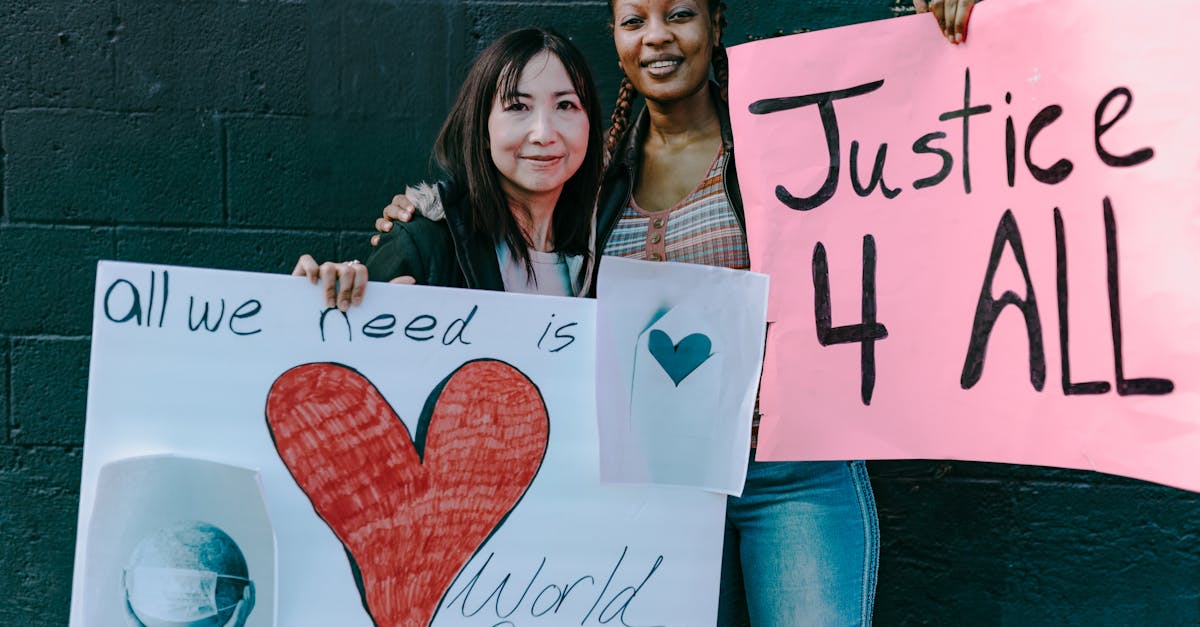 all we need is
World
Justice
4 ALL